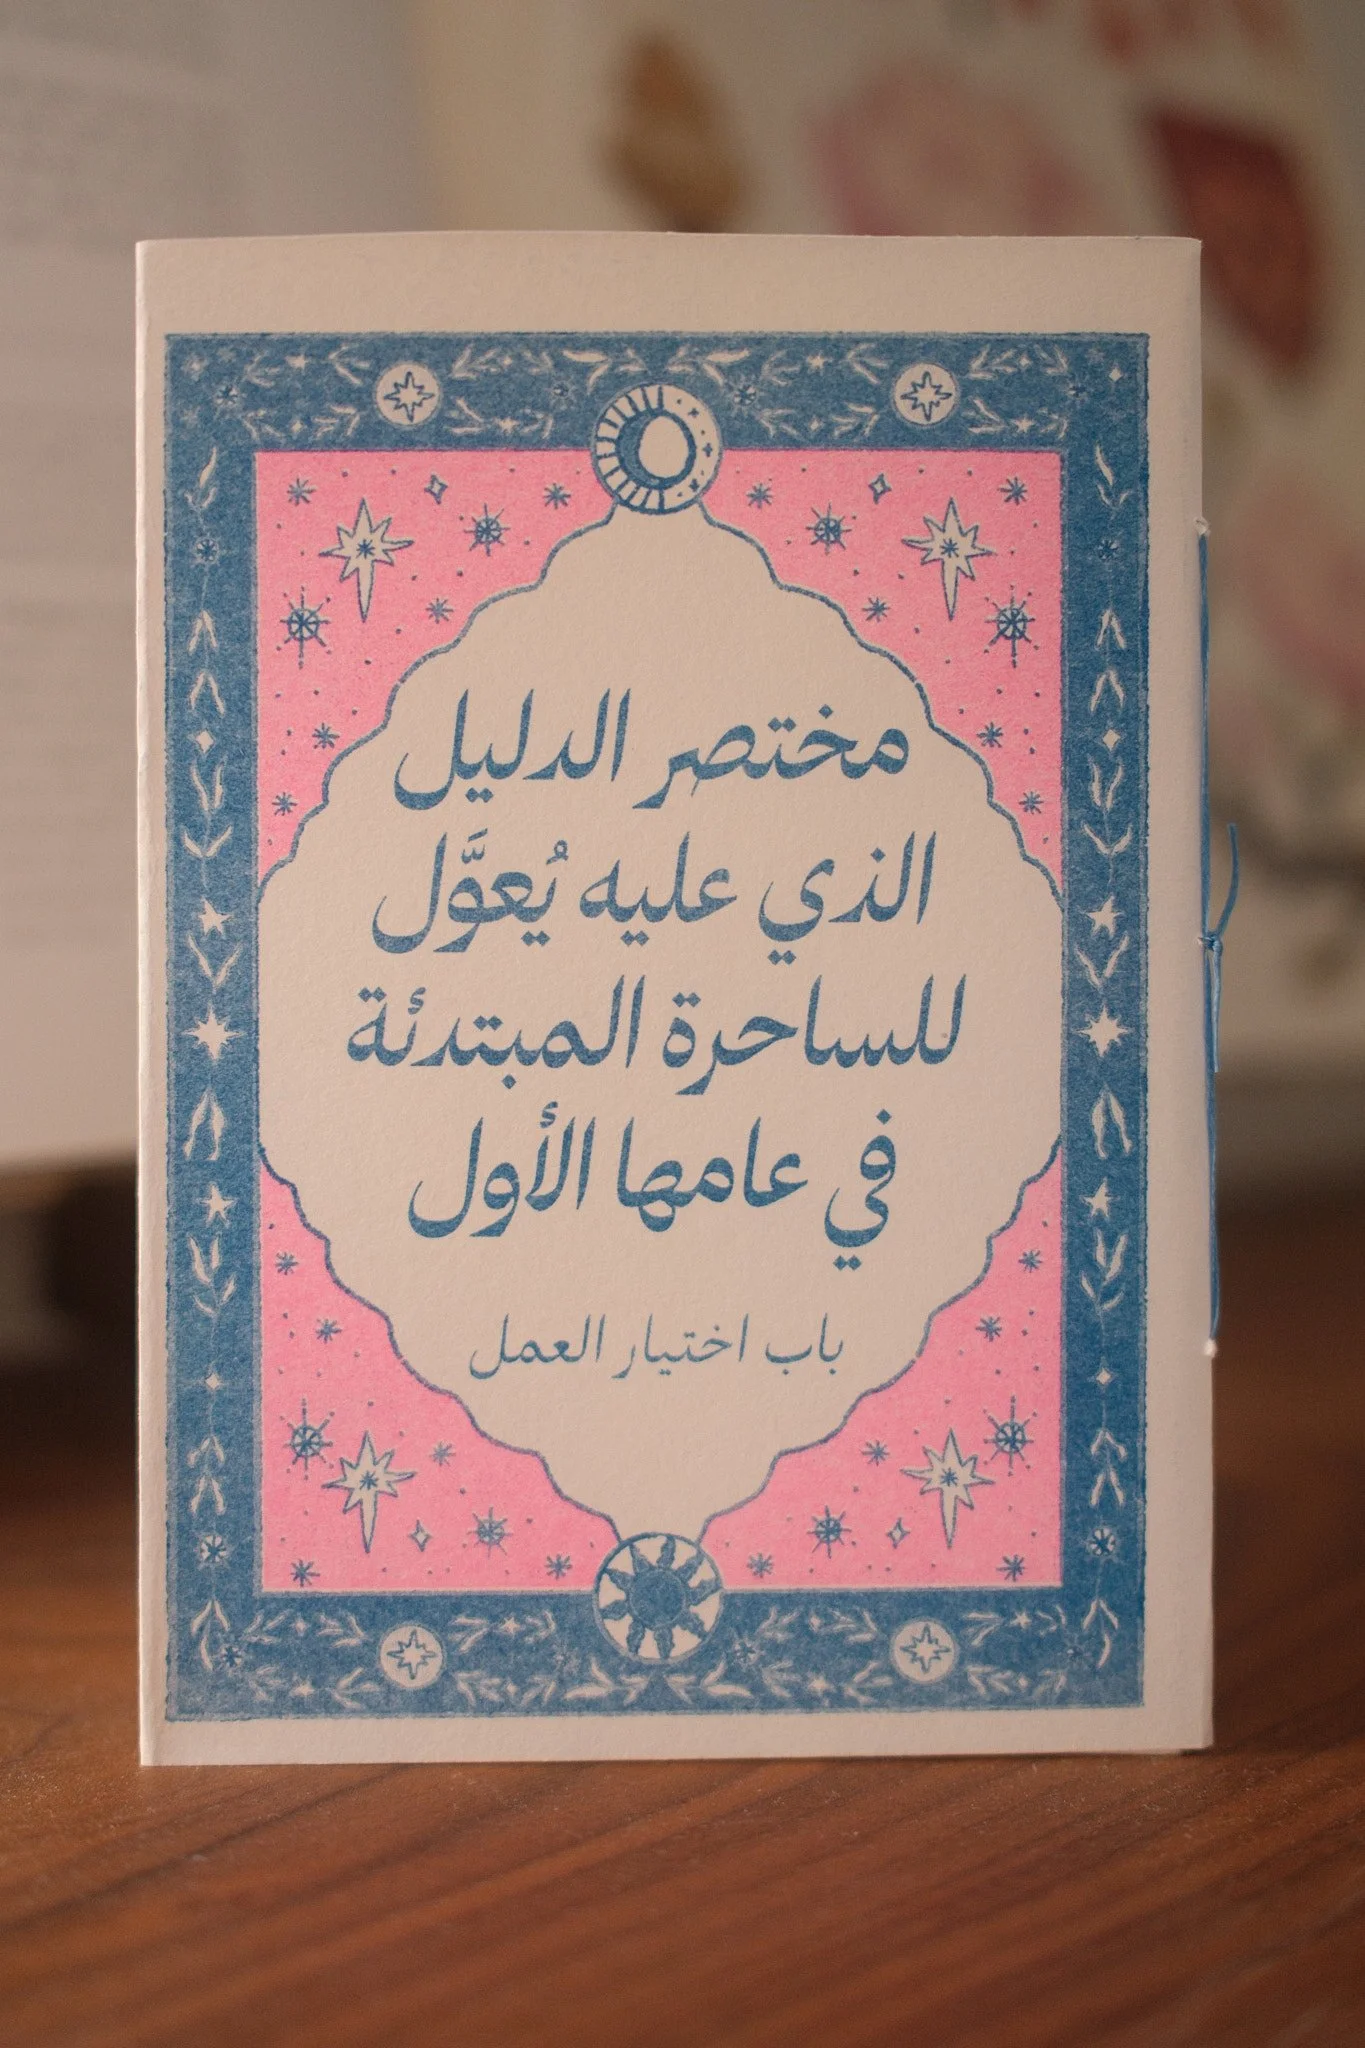 مختصر الدليل
الذي عليه يُعوَّل
للساحرة المبتدئة
في عامها الأول
باب اختيار العمل